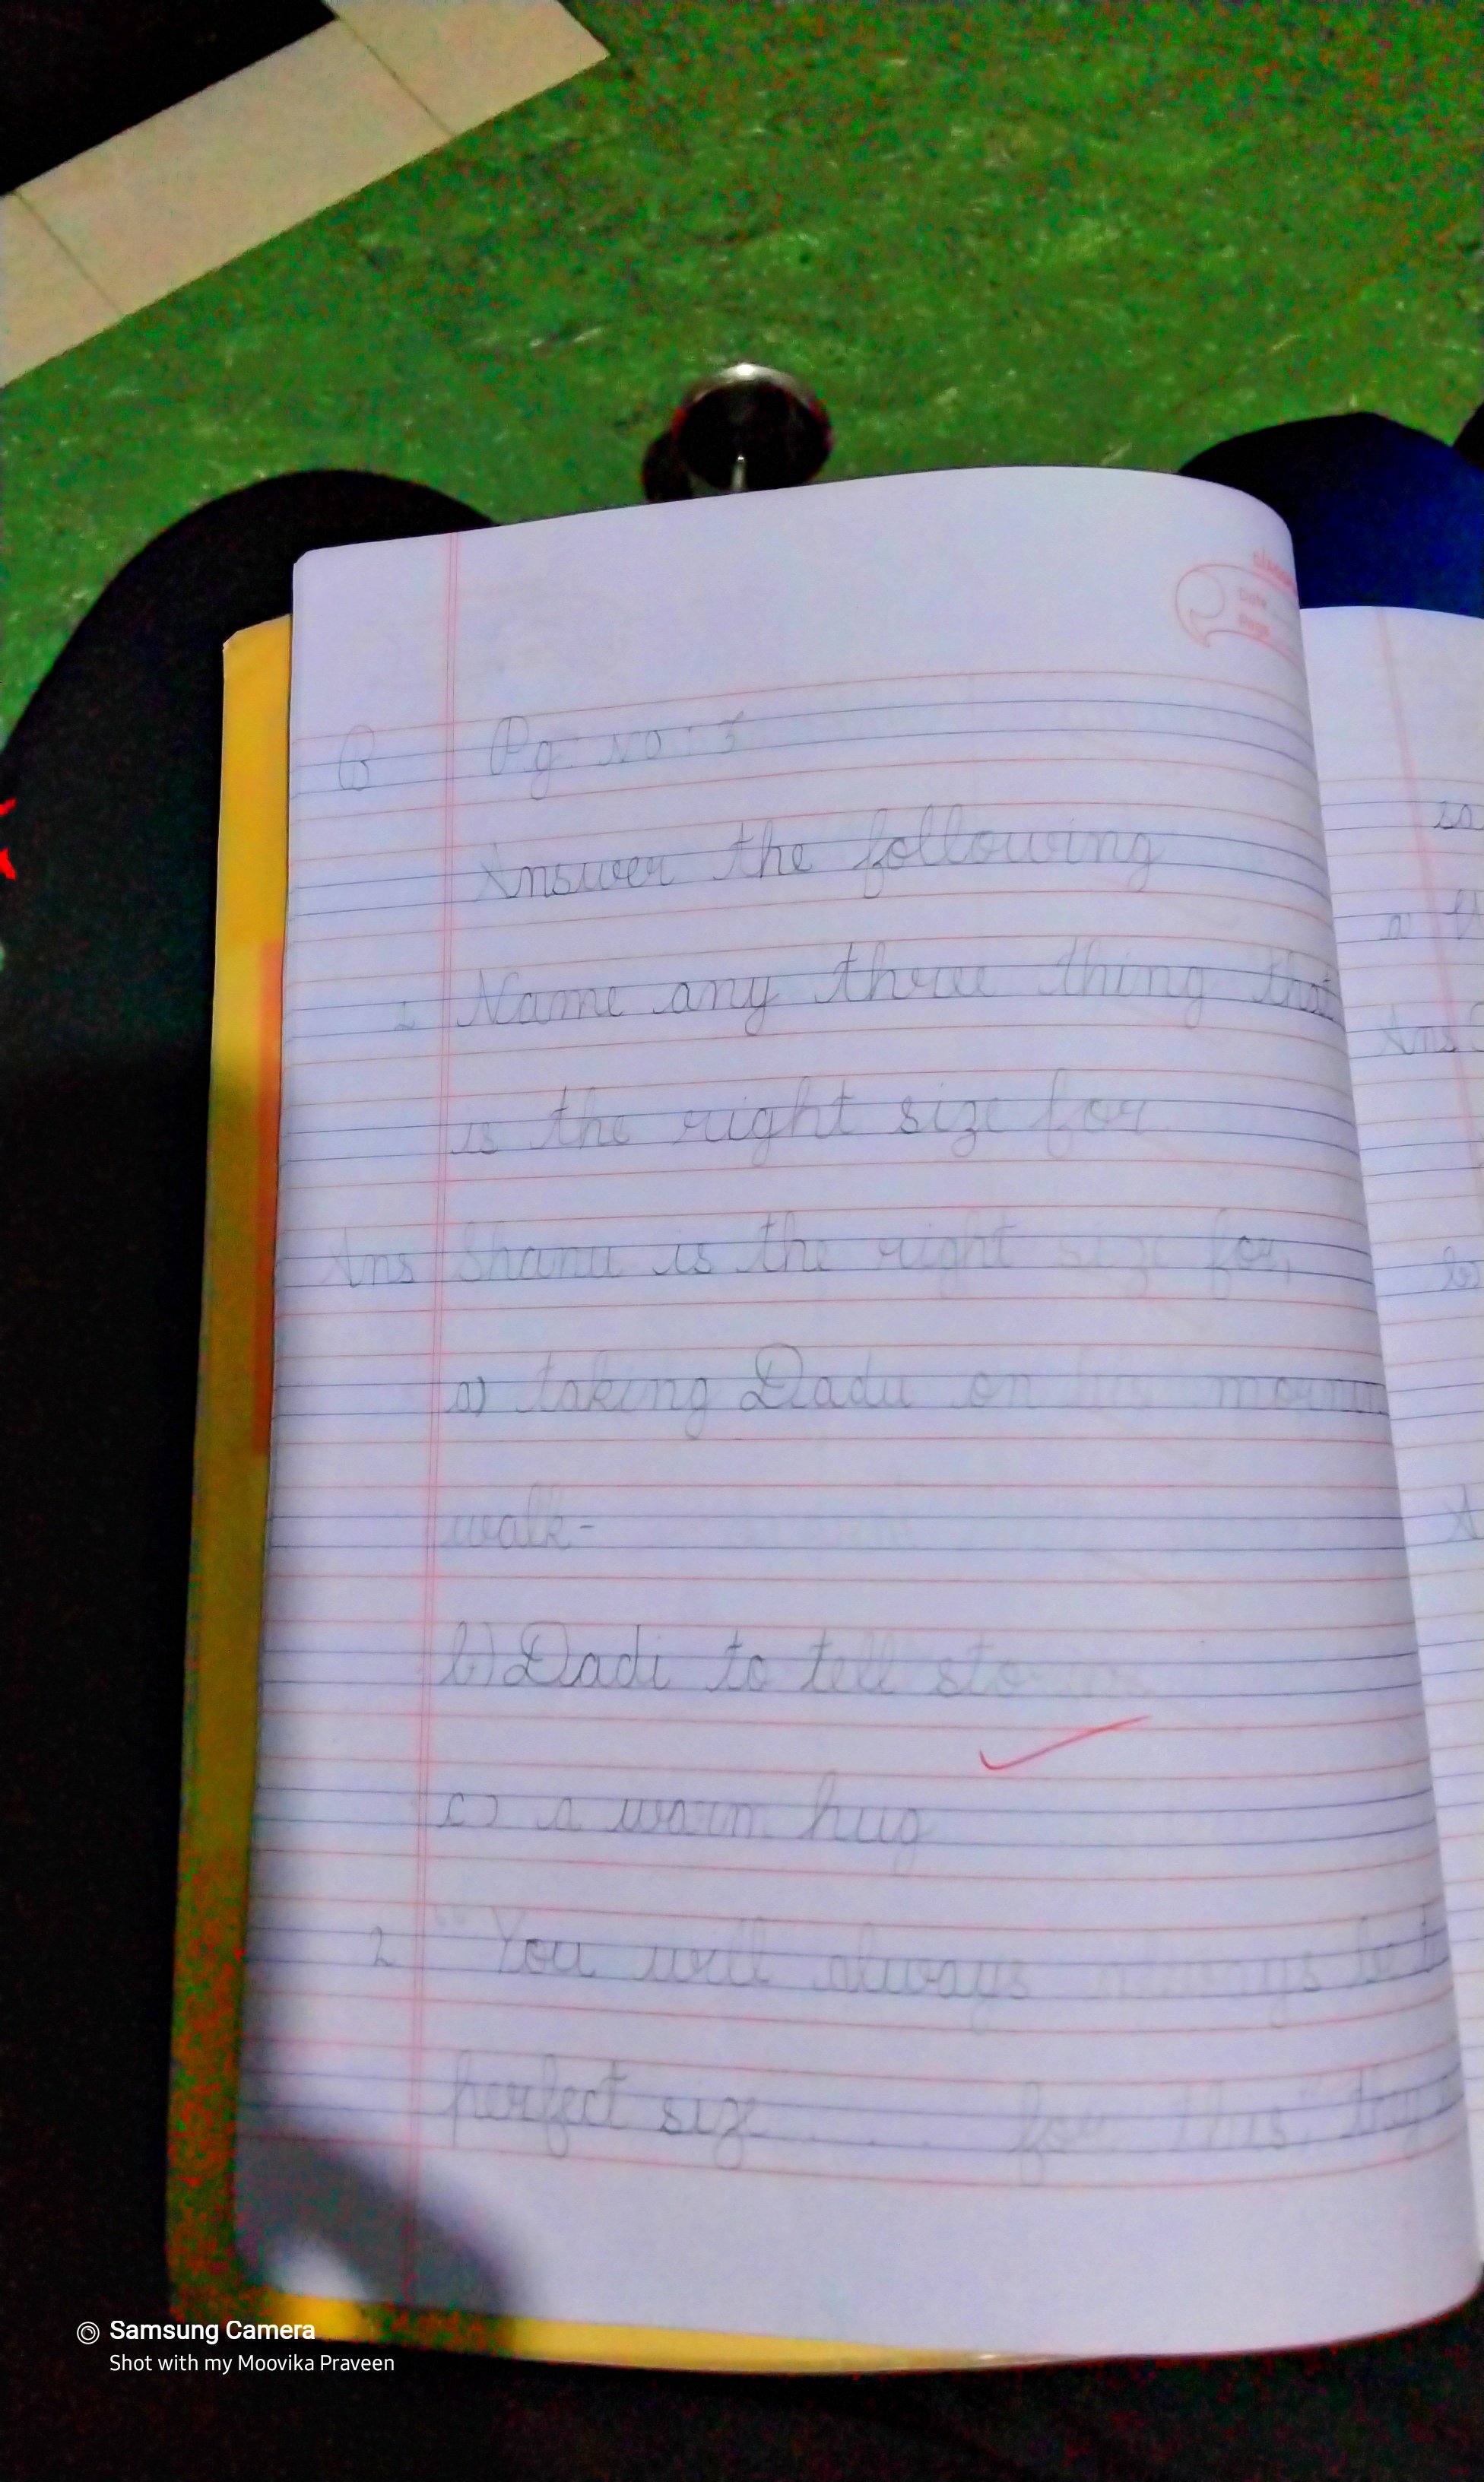 B Pg. no : 3
Answer the following
1 Name any three thing that
is the right size for
Ans Shanu is the right size for,
a) taking Dadu on his mornin
walk-
b) Dadi to tell
c) a warm hug
2 "You will always always be
perfect size ..... for this," they
Date
Page
Ans
Samsung Camera
Shot with my Moovika Praveen